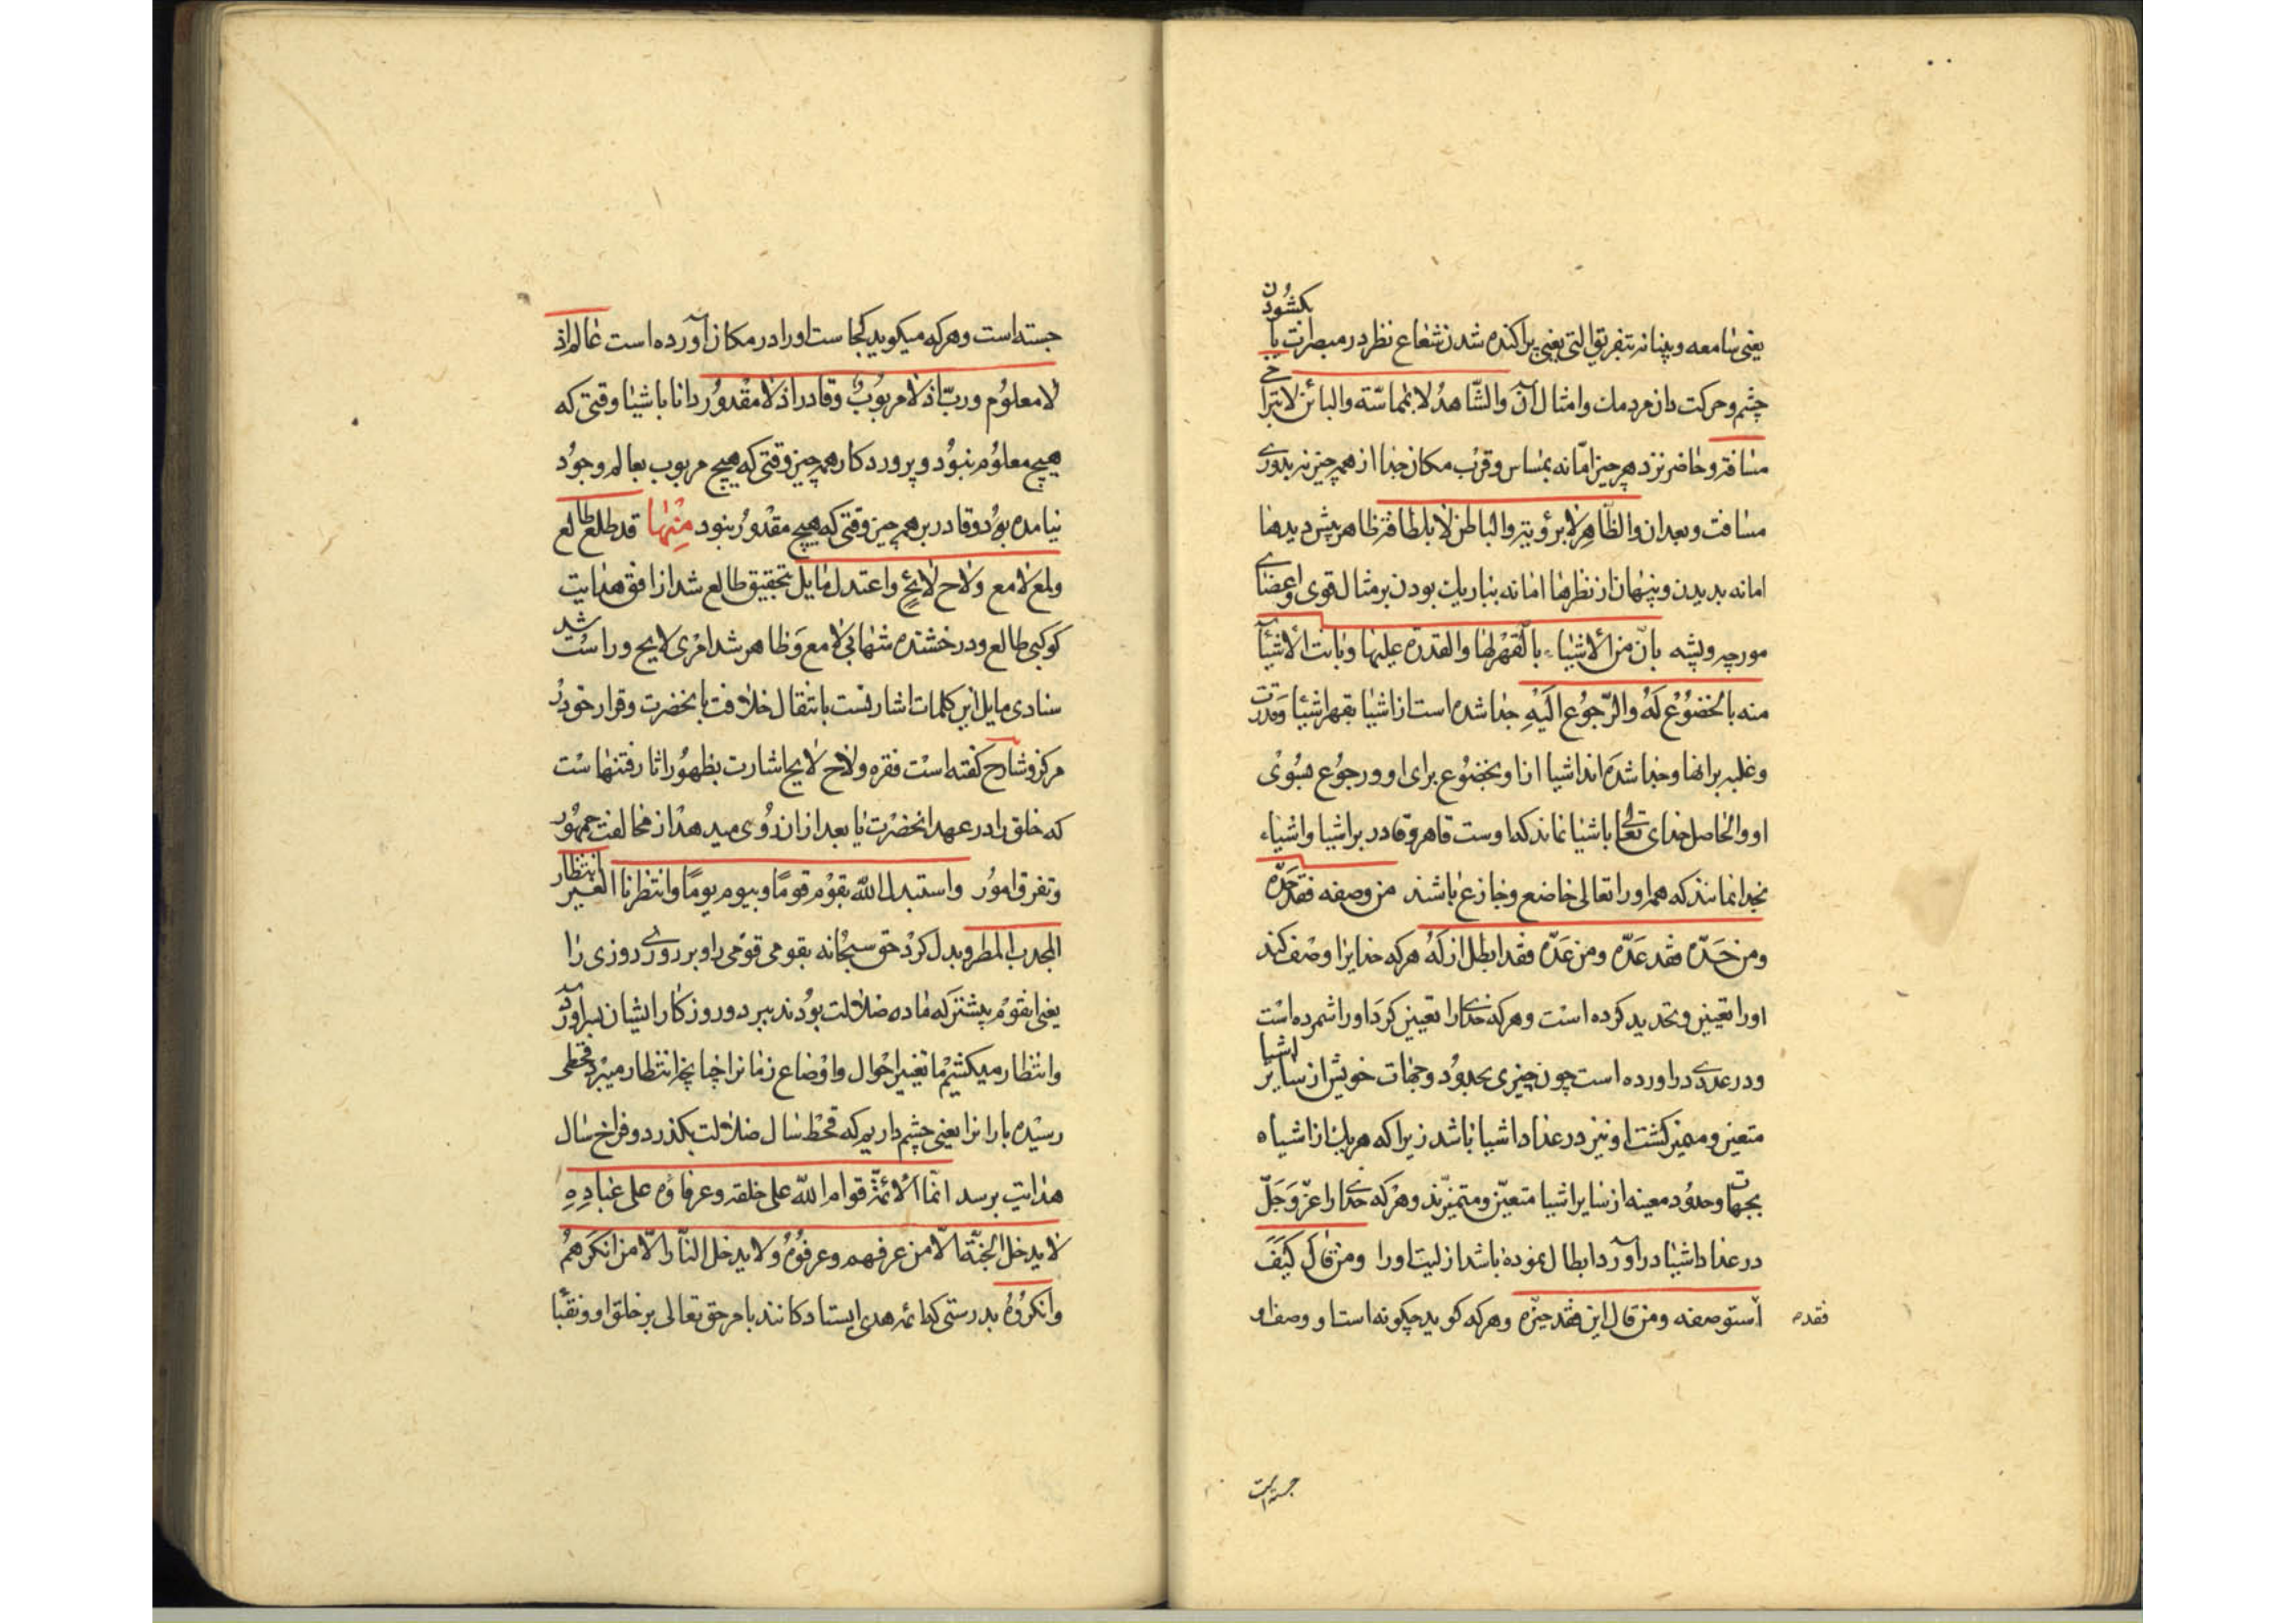 یعنی سامعه و بینا نه بتفریق التی یعنی پراکنده شدن شعاع نظر در مبصرات یا بکشودن
چشم و حرکت دادن مردمک و امثال آن والشّاهدُ لا بمماسّة والبائن لا بتراخی
مسافة و حاضر نزد هر چیز امّا نه بمساس و قرب مکان جدا از همه چیز نه بدوری
مسافت و بعد ان والظّاهِر لا برؤیة والباطن لا بلطافة ظاهر پیش دیدها
اما نه بدیدن و پنهان از نظرها اما نه بباریک بودن بر مثال قوی و اعضای
مورچه و پشه بان من الأشیاء بالقَهْر لها والقدرة علیها وبانت الأشیاء
منه بالخضُوُع لَهُ والرّجوُع الَیْهِ جدا شده است از اشیا بقهر اشیا و قدرت
و غلبه بر انها و جدا شده‌اند اشیا از او بخضوُع برای او و رجوُع بسُوی
او والحاصل خدای تعالی باشیا نماند که اوست قاهر و قادر بر اشیا و اشیاء
بخدا نمانند که همه او را تعالی خاضع و جازع باشند من وصفه فقد حَدّه
ومن حَدّه فقد عَدّه ومن عَدّه فقد ابطل ازلَهُ هر که خدایرا وصْف کند
اورا تعیین و تحدید کرده است و هر که خدی را تعیین کرد اورا شمرده است
و در عددی دراورده است چون چیزی بحدوُد و جهات خویش از سایر اشیا
متعین و ممیز کشت او نیز در عداد اشیا باشد زیرا که هر یک از اشیاء
بجهات و حدوُد معینه از سایر اشیا متعیّن و متمیّزند و هر که خدی را عزّ وَجَلّ
در عداد اشیا درآورد ابطال نموده باشد ازلیت اورا ومن قال کَیْفَ
فقده استوصفه ومن قال این فقد حیّزه و هر که کوید چکونه است او وصف او
جسته است
جسته است و هر که میکوید کجاست اورا در مکان آورده است عالم اذ
لا معلوُم وربّ اذ لا مربوُب وقادر اذ لا مقْدوُر دانا باشیا وقتی که
هیچ معلوُم نبوُد و پروردکار همه چیز وقتی که هیچ مربوب بعالم وجوُد
نیامده بوُد و قادر بر همه چیز وقتی که هیچ مقدوُر نبود مِنْها قد طلع طالع
ولمع لامع ولاح لائح واعتدل مایل بتحقیق طالع شد از افق هدایت
کوکبی طالع و درخشنده شهابی لامع وَ ظاهر شد امْری لایح و راست شد
سنادی مایل این کلمات اشارتست بانتقال خلافت بانحضرت و قرار خود در
مرکز و شارح کفته است فقره ولاح لایح اشارت بظهوُر اثار فتنهاست
که خلق را در عهد انحضرت یا بعد از ان روُی میدهد از مخالفت جمهوُر
و تفرق اموُر واستبدل اللّه بقوْم قومًا وبیوم یومًا وانتظرنا الغیر انتظار
المجدب المطر و بدل کرد حق سبحانه بقومی قوْمی را و بروزی روزی را
یعنی انقوم پیشتر که ماده ضلالت بوُدند ببرد و روزکار ایشان براورد
و انتظار میکشیم ما تغییر احْوال و اوْضاع زمانرا چنانچه انتظار میبرد قحطی
رسیْده بارانرا یعنی چشم داریم که قحط سال ضلالت بکذرد و فراخ سال
هدایت برسد انّما الأئمّة قوام اللّه علی خلقه وعرفاؤه علی عبادِهِ
لا یدخل الجنّة الّا من عرفهم وعرفوُهُ ولا یدخل النّار الّا من انکرهمُ
وانکروُهُ بدرستی که ائمه هدی ایستادکانند بامر حق تعالی بر خلق او و نقبا